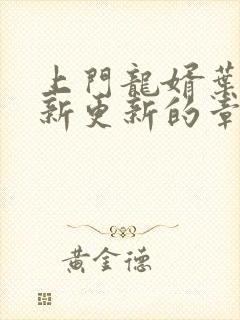 上門龍婿葉
新更新的章
黃金德